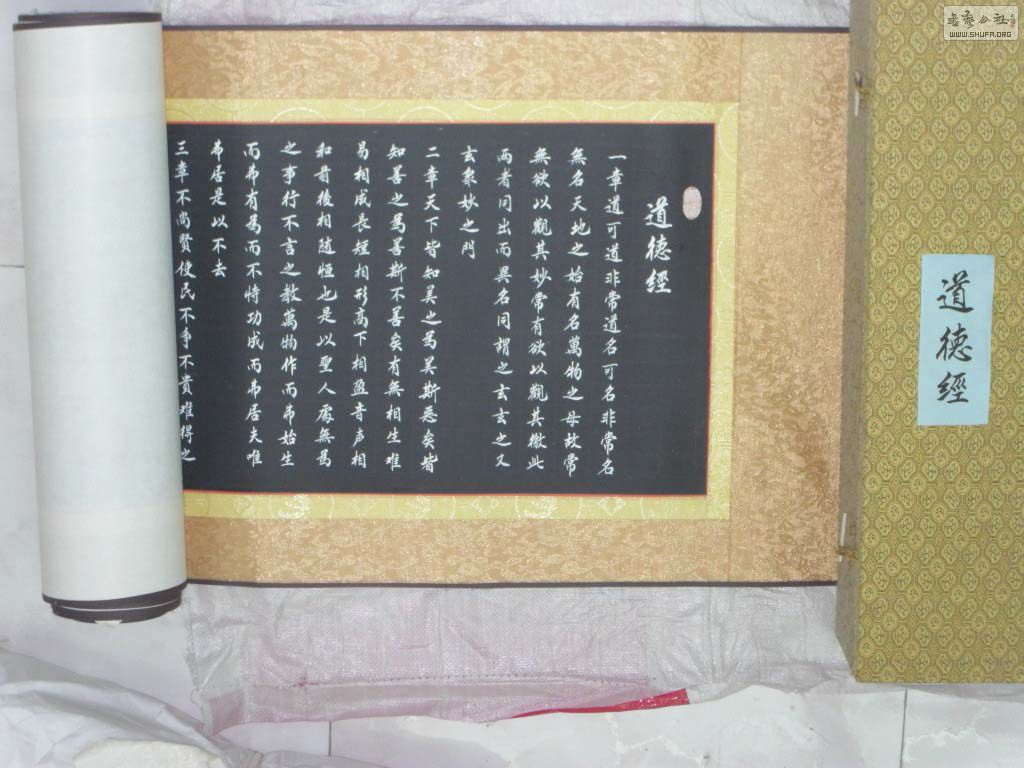 道德經
道德經
一章道可道非常道名可名非常名
無名天地之始有名萬物之母故常
無欲以觀其妙常有欲以觀其徼此
兩者同出而異名同謂之玄玄之又
玄衆妙之門
二章天下皆知美之為美斯惡矣皆
知善之為善斯不善矣有無相生难
易相成長短相形高下相盈音声相
和前後相随恒也是以聖人處無為
之事行不言之教萬物作而弗始生
而弗有為而不恃功成而弗居夫唯
弗居是以不去
三章不尚賢使民不争不貴难得之
書藝公社
WWW.SHUFA.ORG